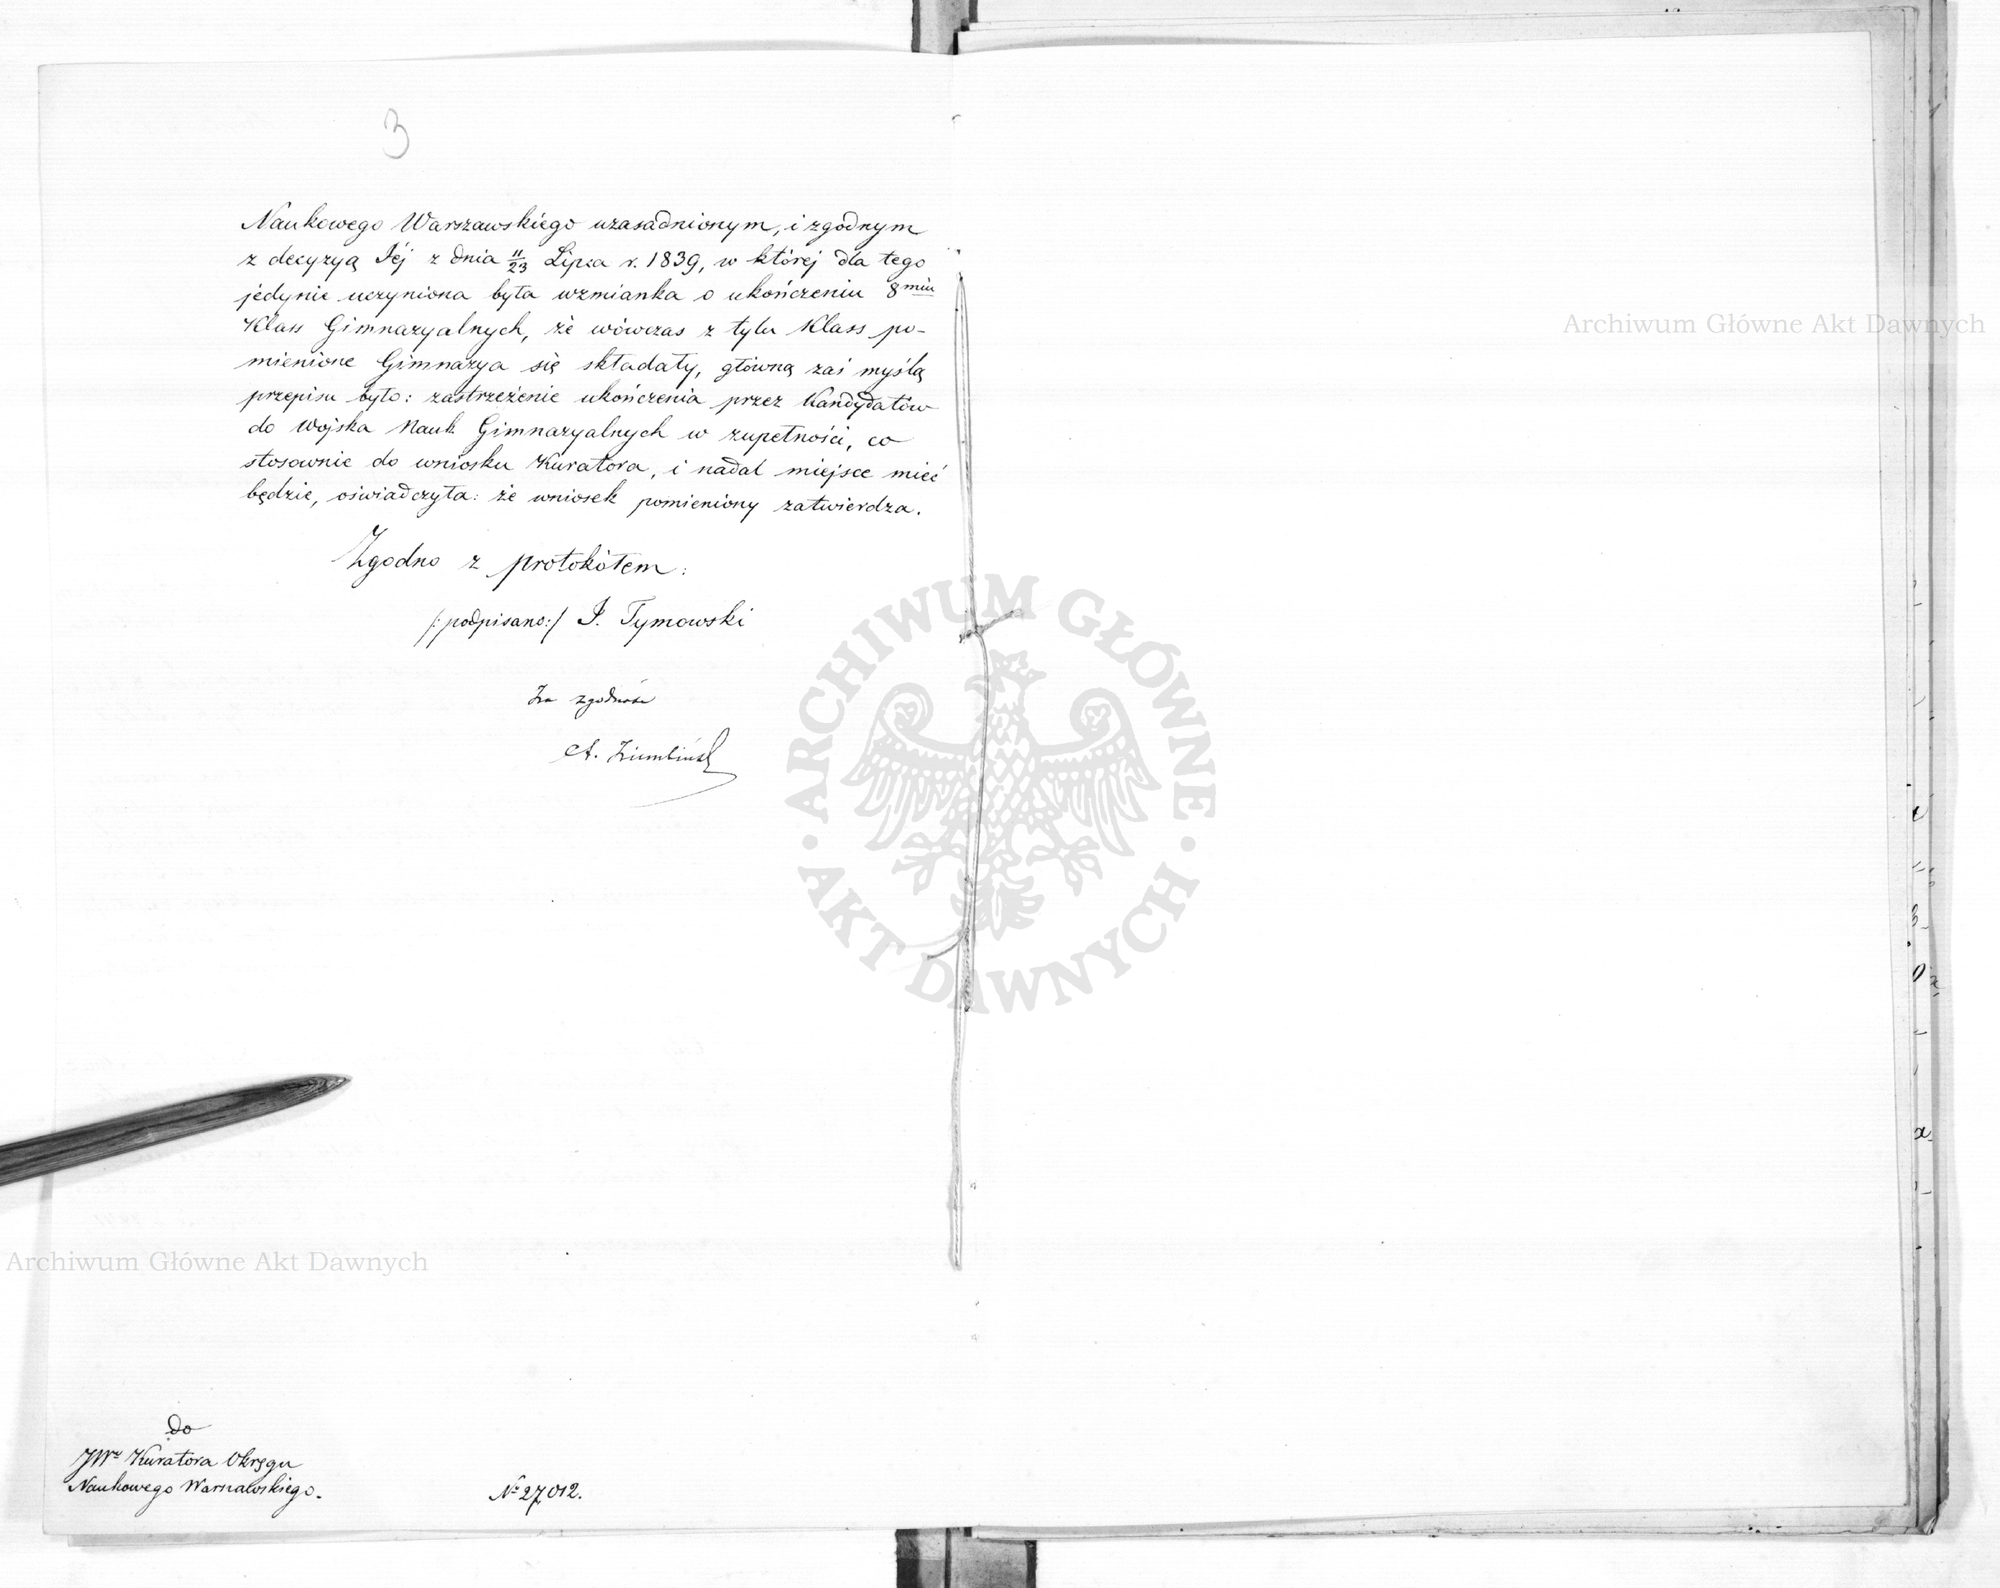 3
Naukowego Warszawskiego uzasadnionym, i zgodnym
z decyzyą Jéj z dnia 11/23 Lipca r. 1839, w której dla tego
jedynie uczyniona była wzmianka o ukończeniu 8miu
Klass Gimnazyalnych, że wówczas z tylu Klass po-
mienione Gimnazya się składały, główną zaś myślą
przepisu było: zastrzeżenie ukończenia przez Kandydatów
do wojska Nauk Gimnazyalnych w zupełności, co
stosownie do wniosku Kuratora, i nadal miejsce mieć
będzie, oświadczyła: że wniosek pomieniony zatwierdza.
Zgodno z protokółem:
/:podpisano:/ J. Tymowski
Za zgodność
A.
do
JWo Kuratora Okręgu
Naukowego Warszawskiego.
No 27,012.
ARCHIWUM GŁÓWNE
· AKT DAWNYCH ·
Archiwum Główne Akt Dawnych
Archiwum Główne Akt Dawnych